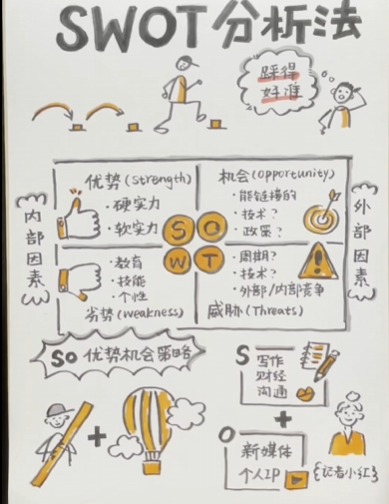 SWOT分析法
踩得
好准
优势(Strength)
·硬实力
·软实力
机会(opportunity)
·能链接的
·技术?
·政策?
内部因素
外部因素
S O
W T
·教育
·技能
·个性
劣势(weakness)
·周期?
·技术?
·外部/内部竞争
威胁(Threats)
SO 优势机会策略
S 写作
财经
沟通
+
+
O 新媒体
个人IP
{记者小江}